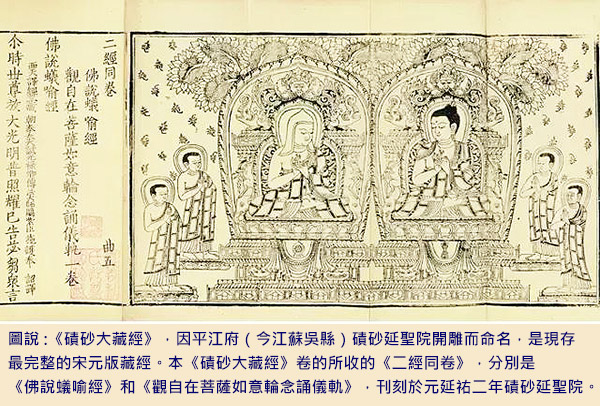 二經同卷
佛說蟻喻經
觀自在菩薩如意輪念誦儀軌一卷
曲五
佛說蟻喻經
尒時世尊放大光明普照耀已告苾芻衆言
圖說:《磧砂大藏經》,因平江府(今江蘇吳縣)磧砂延聖院開雕而命名,是現存
最完整的宋元版藏經。本《磧砂大藏經》卷的所收的《二經同卷》,分別是
《佛說蟻喻經》和《觀自在菩薩如意輪念誦儀軌》,刊刻於元延祐二年磧砂延聖院。